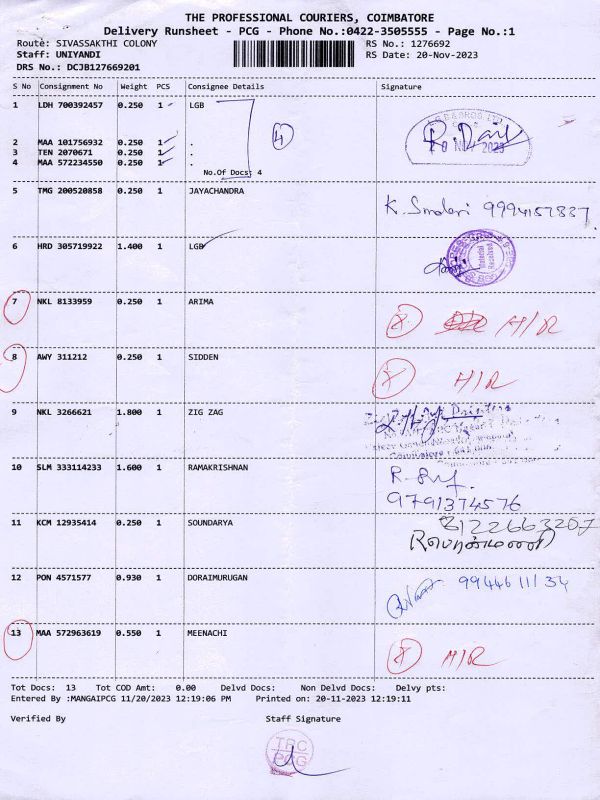 THE PROFESSIONAL COURIERS, COIMBATORE
Delivery Runsheet - PCG - Phone No.:0422-3505555 - Page No.:1
Route: SIVASSAKTHI COLONY RS No.: 1276692
Staff: UNIYANDI RS Date: 20-Nov-2023
DRS No.: DCJB127669201
S No Consignment No Weight PCS Consignee Details Signature
1 LDH 700392457 0.250 1 LGB
2 MAA 101756932 0.250 1 .
3 TEN 2070671 0.250 1 .
4 MAA 572234550 0.250 1 .
No.Of Docs: 4
4
5 TMG 200520858 0.250 1 JAYACHANDRA
9994157837
6 HRD 305719922 1.400 1 LGB
Material Received
7 NKL 8133959 0.250 1 ARIMA
X H/R
8 AWY 311212 0.250 1 SIDDEN
X H/R
9 NKL 3266621 1.800 1 ZIG ZAG
10 SLM 333114233 1.600 1 RAMAKRISHNAN
9791374576
11 KCM 12935414 0.250 1 SOUNDARYA
8122663207
12 PON 4571577 0.930 1 DORAIMURUGAN
9944611134
13 MAA 572963619 0.550 1 MEENACHI
X H/R
Tot Docs: 13 Tot COD Amt: 0.00 Delvd Docs: Non Delvd Docs: Delvy pts:
Entered By :MANGAIPCG 11/20/2023 12:19:06 PM Printed on: 20-11-2023 12:19:11
Verified By Staff Signature
TPC
PCG